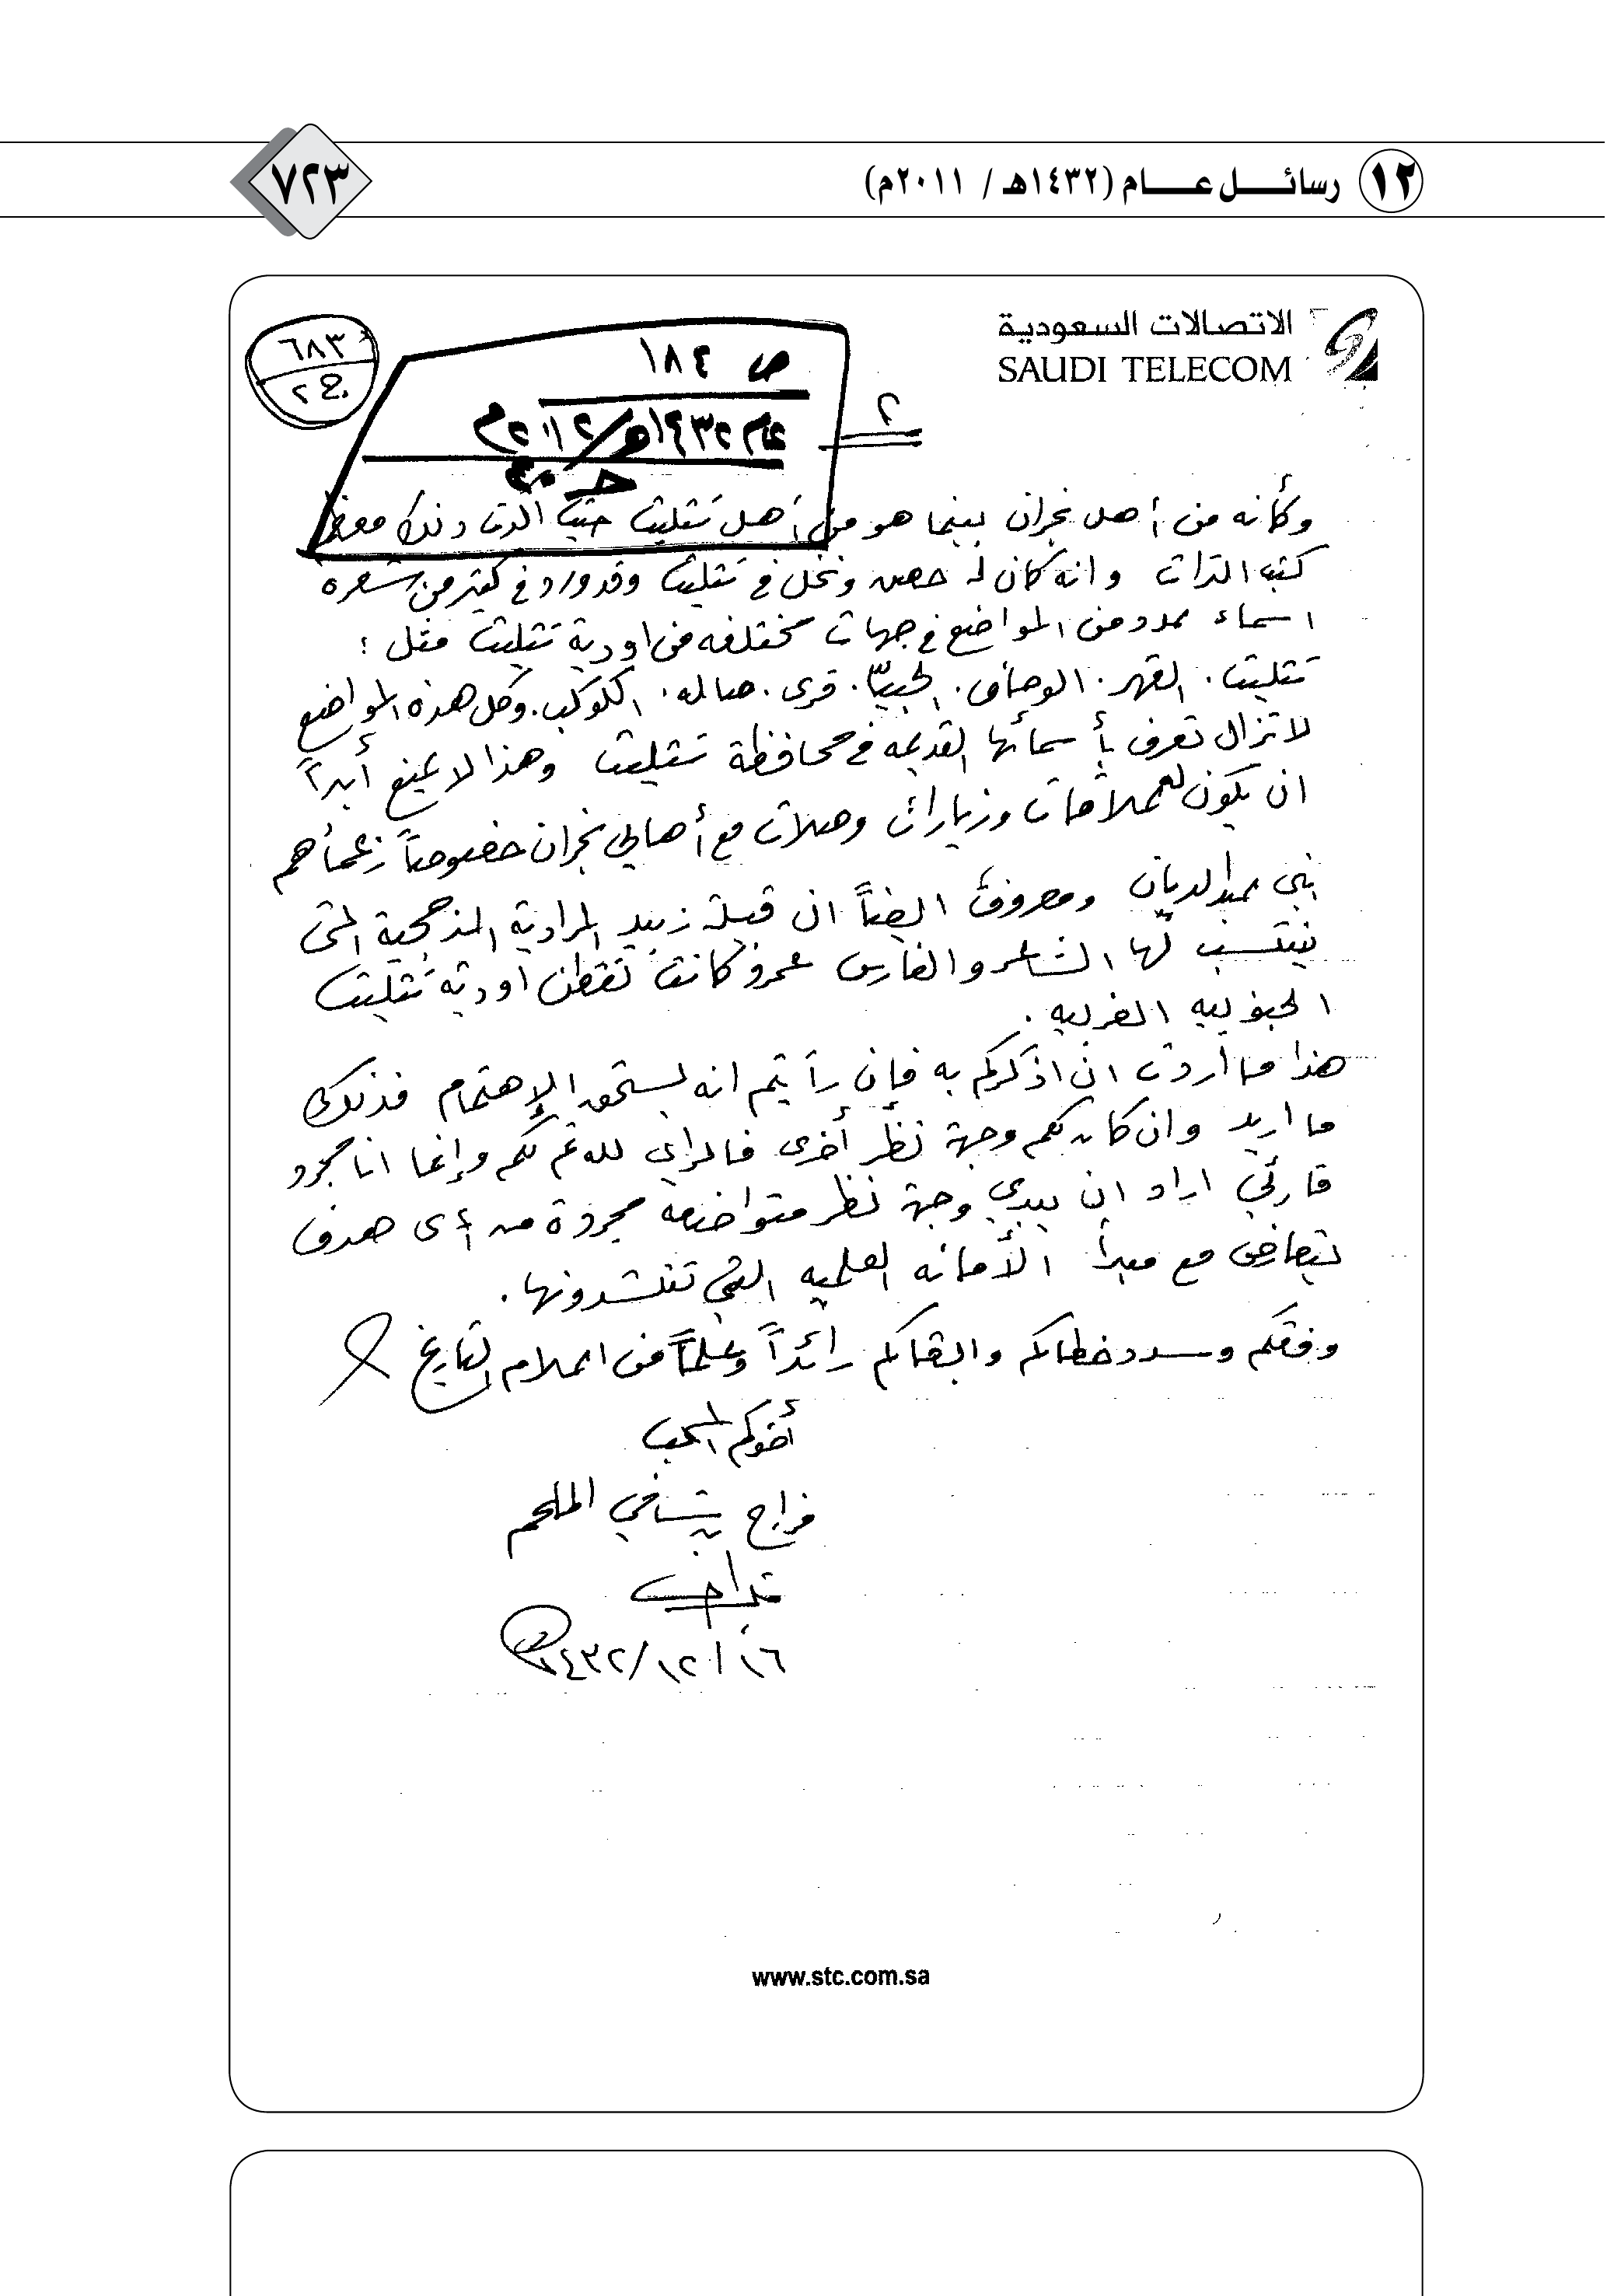 ١٢ رسائل عام (١٤٣٢هـ / ٢٠١١م)
٧٢٣
الاتصالات السعودية
SAUDI TELECOM
٦٨٣
ص ١٨٤
عام ١٤٣٢هـ/٢٠١٢م
٢
وكأنه من أهل نجران بينما هو من أهل تثليث حيث أكدت ذلك معظم
كتب التراث وانه كان له حصن ونخل في تثليث وقد ورد في كثير من شعره
اسماء عدد من المواضع في جهات مختلفه من اودية تثليث مثل :
تثليث. القهر. الوحاف. الحبيّا. قرى. صاله. الكوكب. وكل هذه المواضع
لا تزال تعرف بأسمائها القديمه في محافظة تثليث وهذا لا يمنع أبداً
ان يكون له علاقات وزيارات وصلات مع أهالي نجران خصوصاً زعمأهم
بني عبدالديان ومعروف ايضاً ان قبيلة زبيد المرادية المذحجية التي
ينتسب لها الشاعر والفارس عمرو كانت تقطن اودية تثليث
الجنوبيه الغربيه .
هذا ما أردت ان اذكركم به فإن رأيتم انه يستحق الإهتمام فذلك
ما اريد وان كان لكم وجهة نظر أخرى فالراي لله ثم لكم وإنما انا مجرد
قارئي اراد ان يبدي وجهة نظر متواضعه مجردة من أي هدف
يتعارض مع مبدأ الأمانه العلميه التي تنشدونها .
وفقكم وسدد خطاكم وابقاكم رائداً وعلماً من اعلام التاريخ
أخوكم المحب
فراج شافي الملحم
١٦/١٢/١٤٣٢
www.stc.com.sa